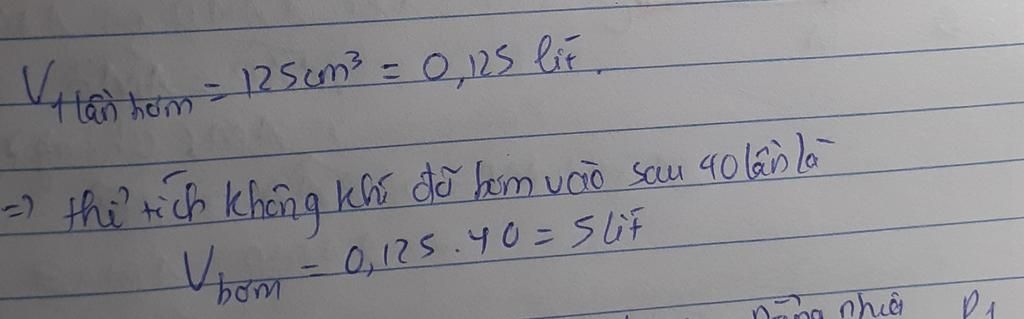 V1 lần bơm = 125cm³ = 0,125 lít.
=> thể tích không khí đã bơm vào sau 40 lần là
Vbơm = 0,125 . 40 = 5 lít
nhiệt P1